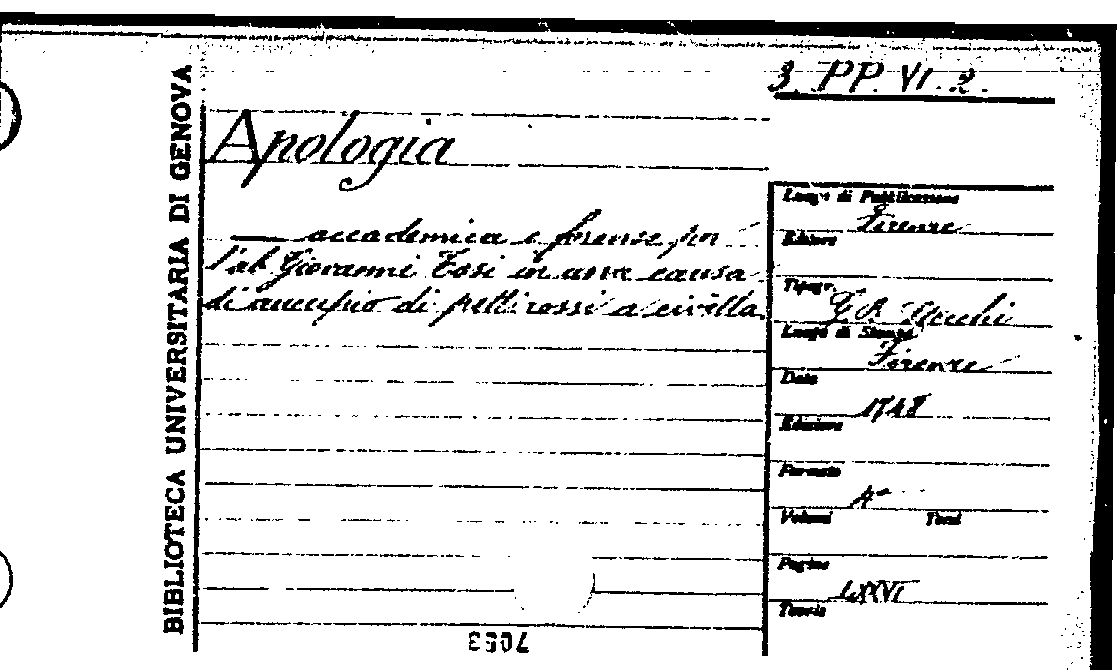 BIBLIOTECA UNIVERSITARIA DI GENOVA
3. PP. VI. 2.
Apologia
— accademica e forense per
l'ab Giovanni Tosi in una causa
di aucupio di pettirossi a civetta.
Luogo di Pubblicazione
Firenze
Editore
Tipogr.
G. B.
Luogo di Stampa
Firenze
Data
1748
Edizione
Formato
4°
Volumi Tomi
Pagine
LXXVI
Tavole
7053